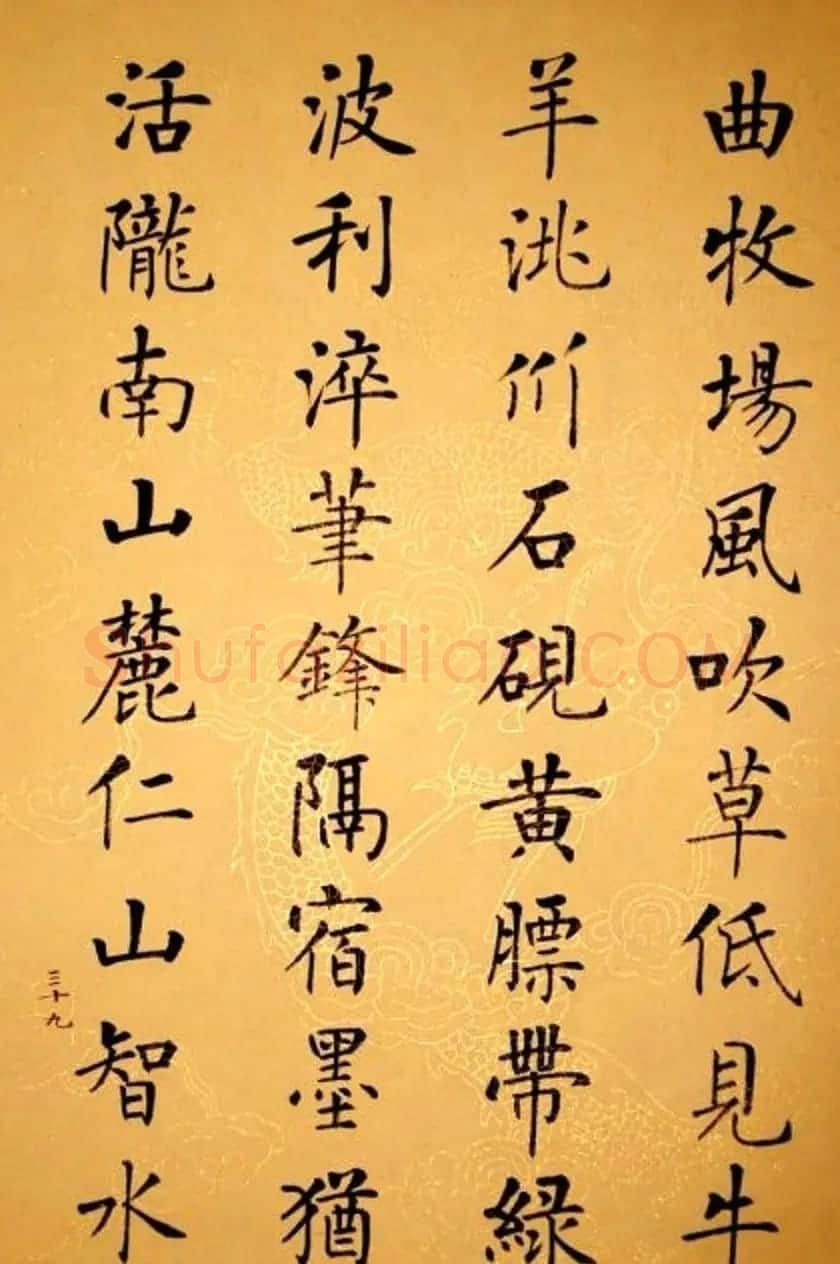 曲牧場風吹草低見牛
羊洮州石硯黃膘帶綠
波利淬筆鋒隔宿墨猶
活隴南山麓仁山智水
三十九